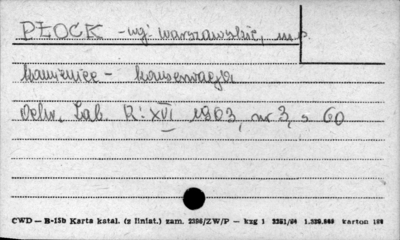 PŁOCK - wg: warszawskie, m.p.
kamienice - konserwacja
Ochr. Zab. R: XVI 1963, nr 3, s. 60
CWD — B-15b Karta katal. (z liniat.) zam. 2356/ZW/P — kzg 1 3351/64 1.320.000 karton 198